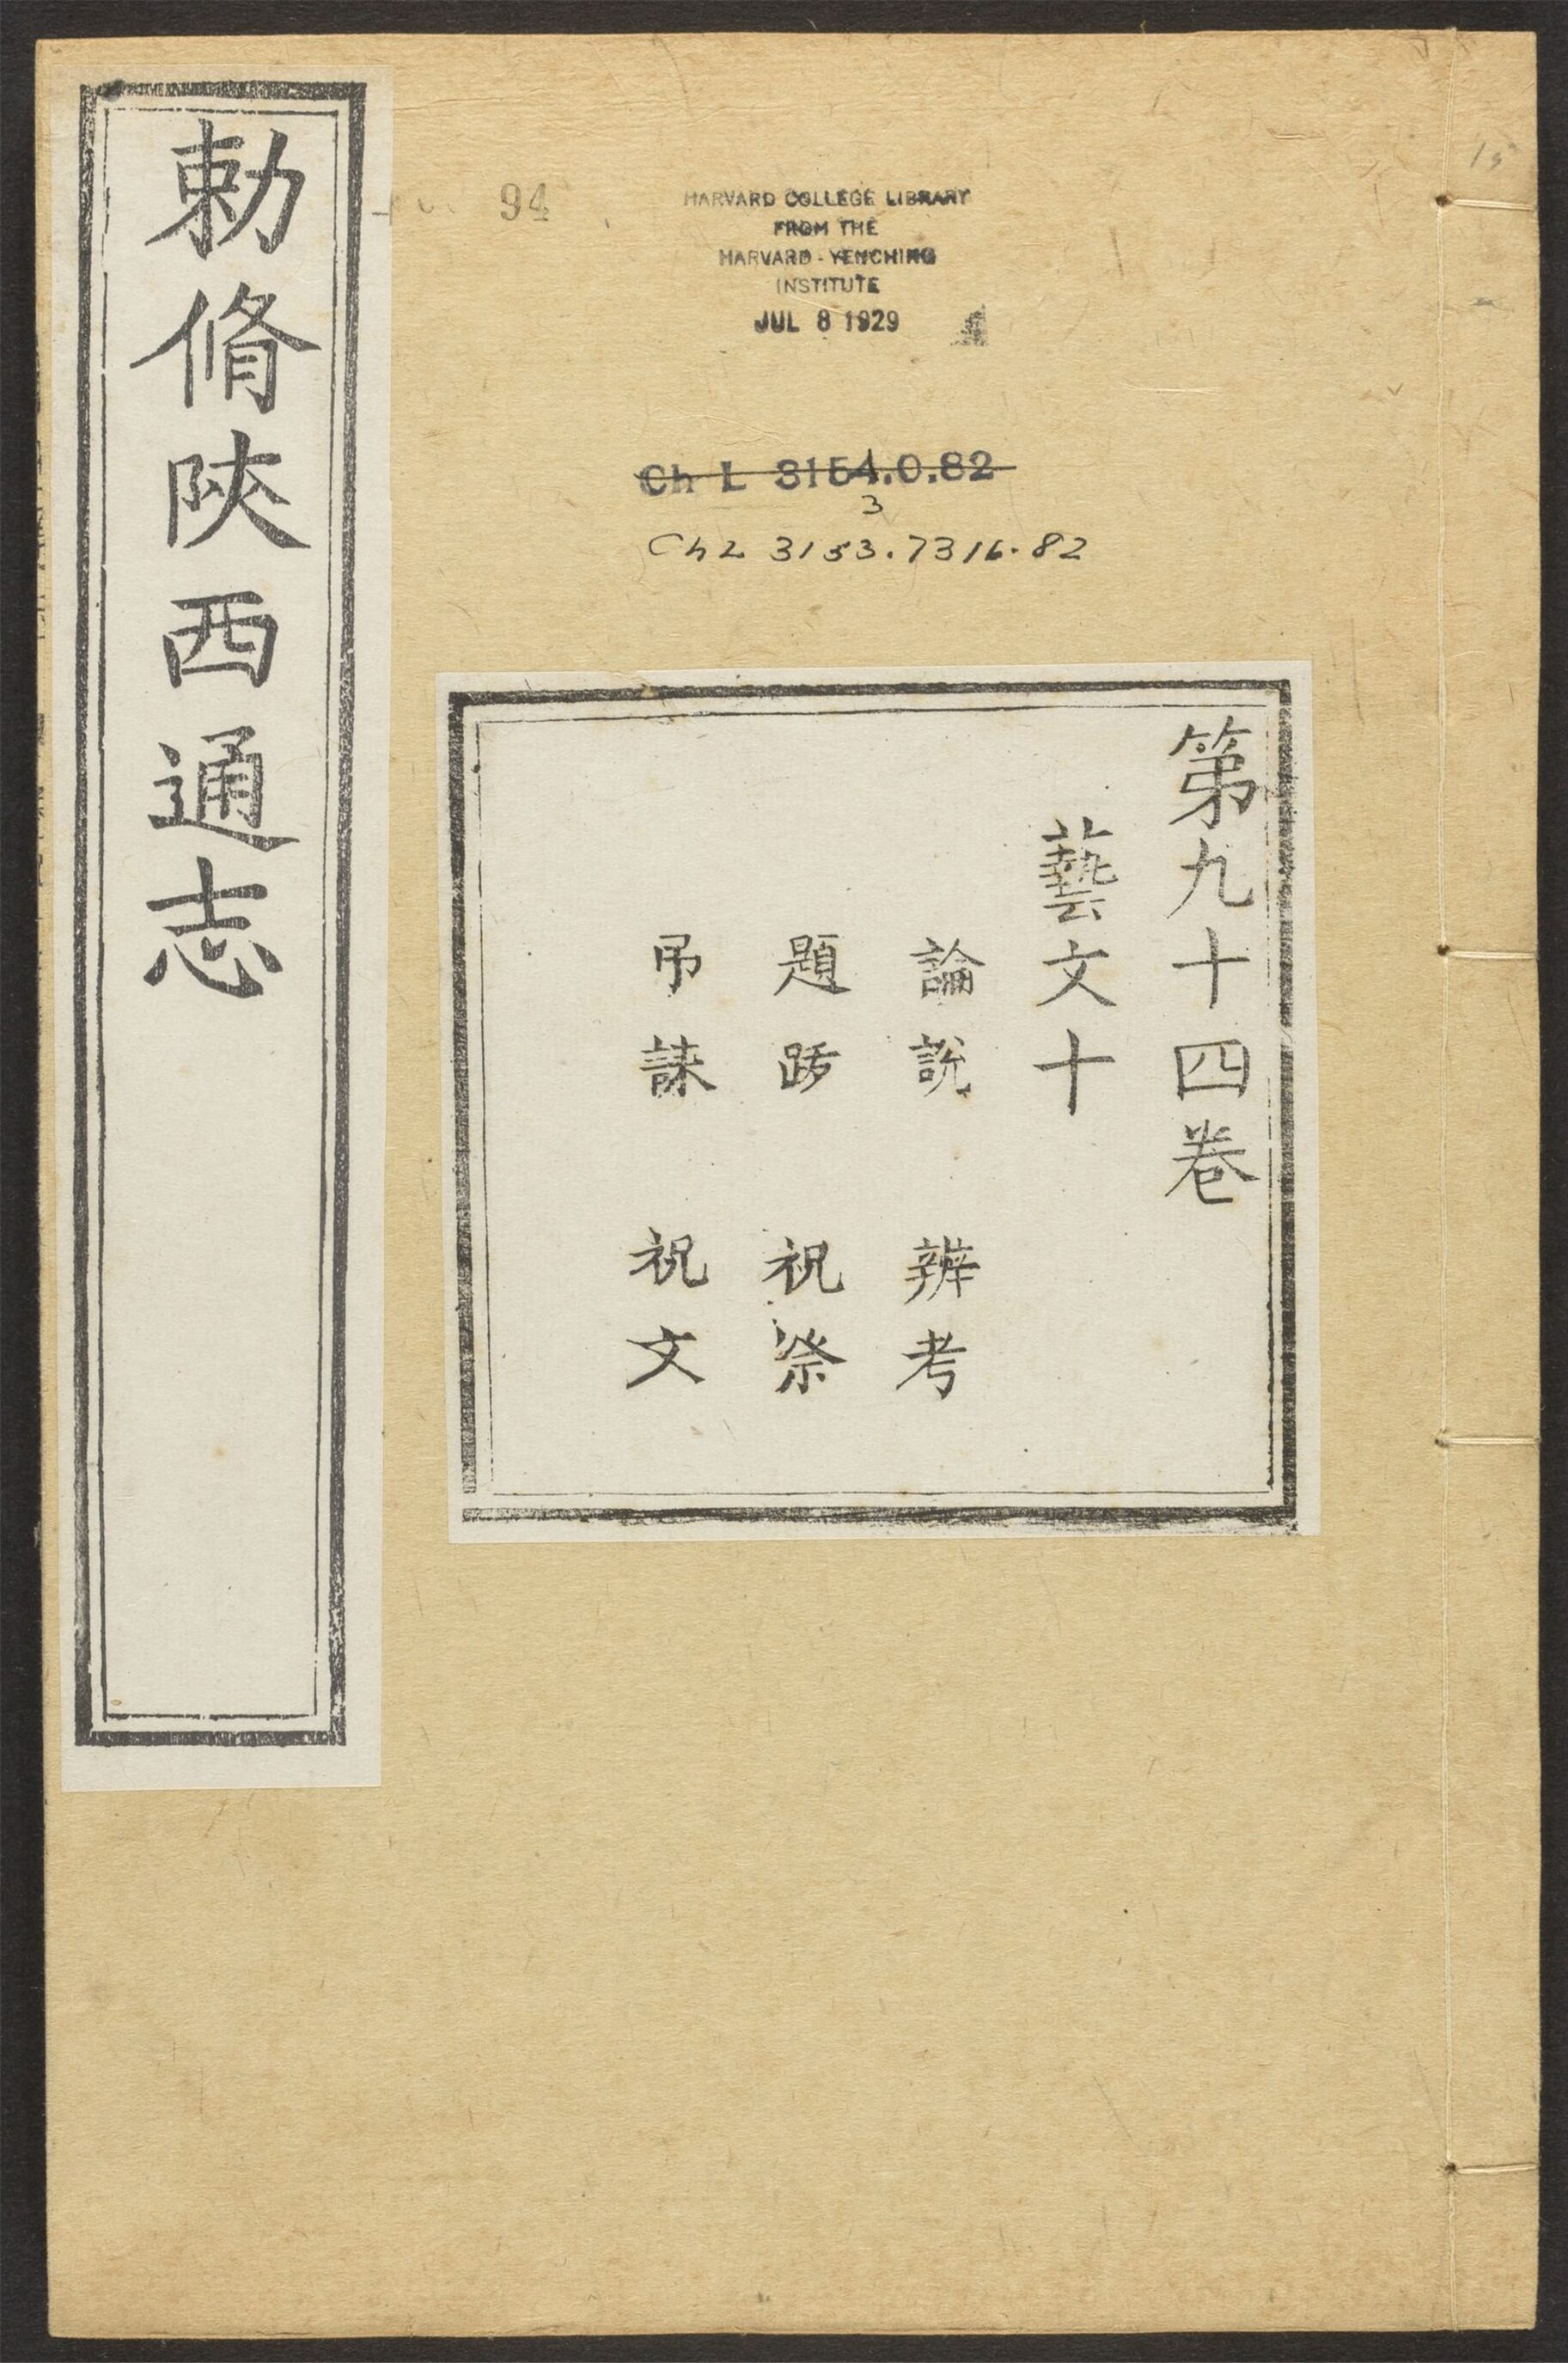 勅脩陝西通志
94
HARVARD COLLEGE LIBRARY
FROM THE
HARVARD-YENCHING
INSTITUTE
JUL 8 1929
Ch L 3154.0.82
3
Ch L 3153.7316.82
第九十四卷
藝文十
論說 辨考
題跋 祝祭
吊誄 祝文